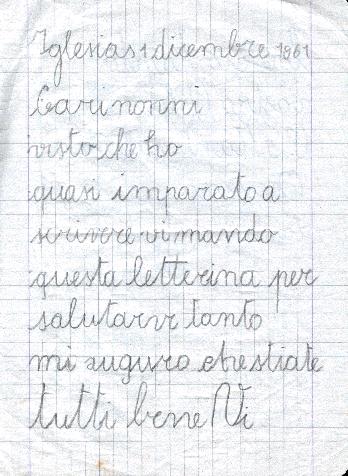 Iglesias 1 dicembre 1961
Cari nonni
visto che ho
quasi imparato a
scrivere vi mando
questa letterina per
salutarvi tanto
mi auguro che stiate
tutti bene Vi